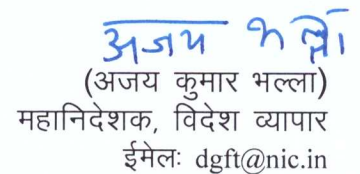 अजय भल्ला
(अजय कुमार भल्ला)
महानिदेशक, विदेश व्यापार
ईमेलः dgft@nic.in